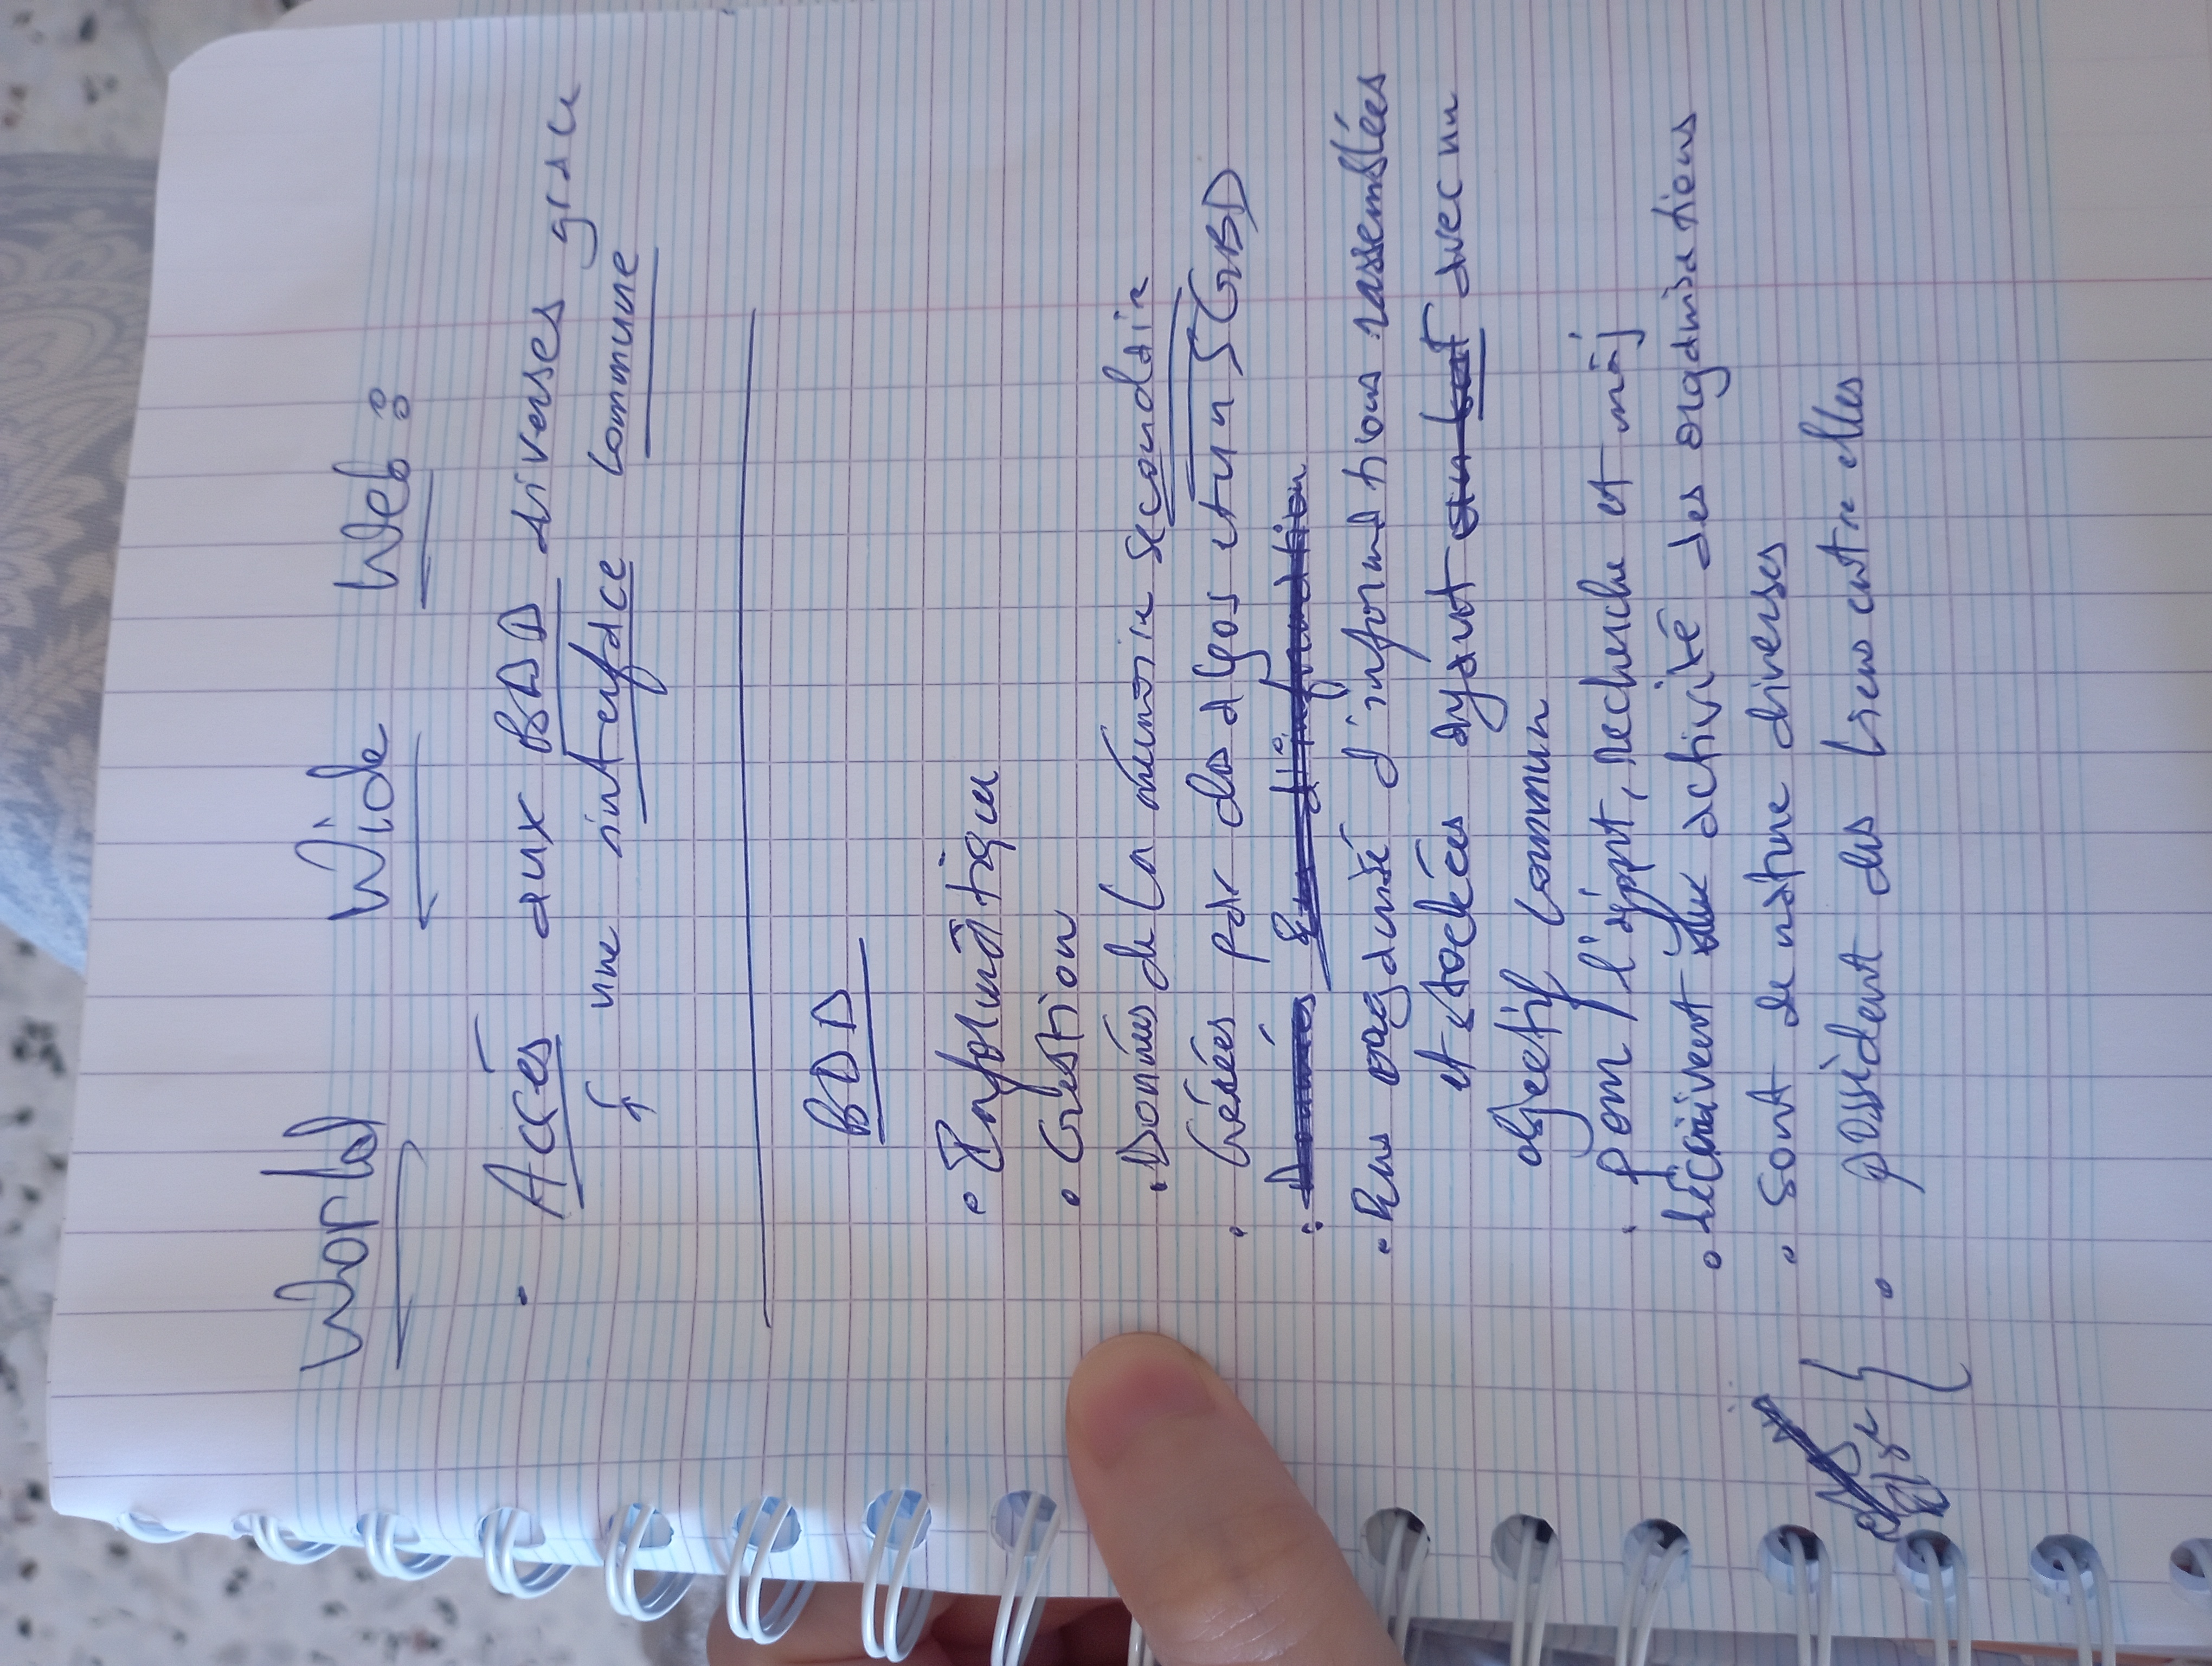 World Wide Web :
· Accès aux BDD diverses grace
à une interface commune
BDD
· Informatique
· Gestion
· Données de la mémoire secondaire
· Gérées par des algos et un SGBD
· Données Ens d'information
· Ens organisé d'informations rassemblées
et stockées ayant un but avec un
objectif commun
· pour l'ajout, recherche et màj
· décrivent activité des organisations
· sont de nature diverses
· possèdent des liens entre elles